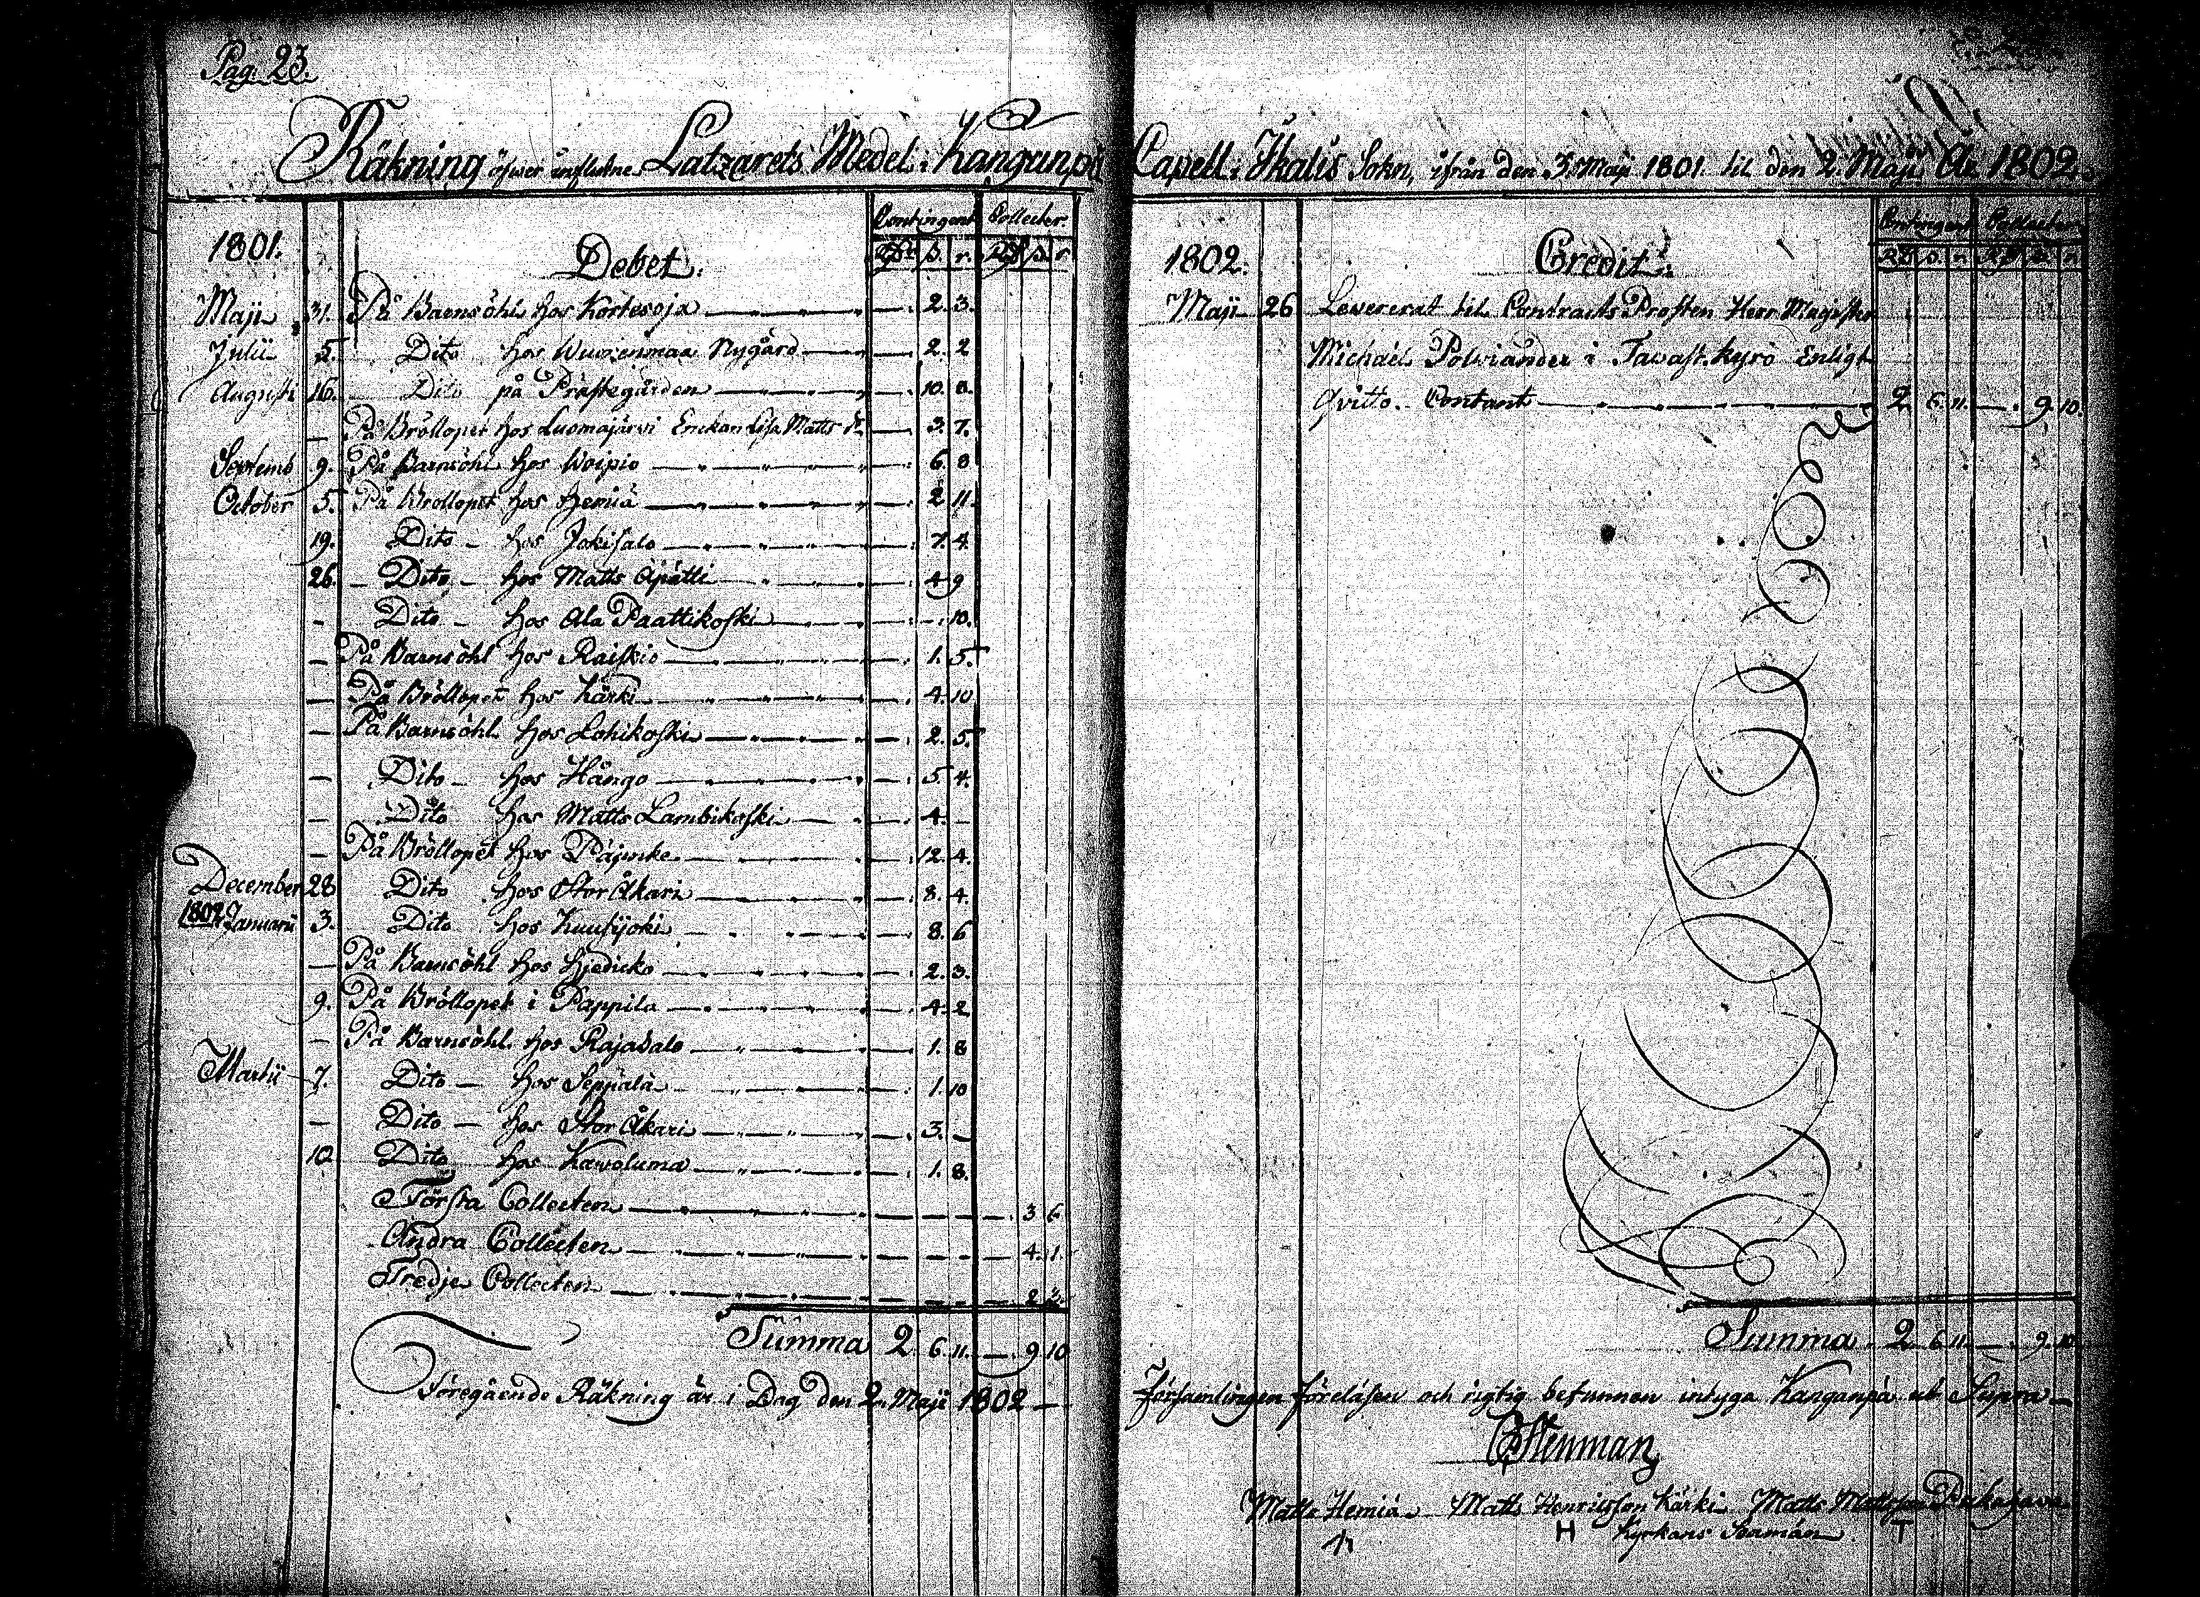 Pag. 23.
Räkning öfwer influtne Latzarets Medel i Kanganpä Capell i Ikalis Sokn, ifrån den 3. Maji 1801. til den 2. Maji År 1802.
Contingent Collecter
1801. Debet. Rdr s. r. Rdr s. r
Maji 31. På Barnsöhl hos Kortesoja — 2. 3.
Julii 5. Dito hos Wuorenmaa Nygård — 2. 2
Augusti 16. Dito på Prästegården — 10. 8.
— På Bröllopet hos Luomajärvi Enckan Lisa Matts dr — 3. 7.
Septemb 9. På Barnsöhl hos Woipio — 6. 8
October 5. På Bröllopet hos Hemiä — 2 11.
19. Dito — hos Jokisalo — 7. 4.
26. — Dito — hos Matts Ajätti — 4 9
— Dito — hos Ala Paattikoski — . 10.
— På Barnsöhl hos Raiskio — 1. 5.
— På Bröllopet hos Kärki — 4. 10
— På Barnsöhl hos Lohikoski — 2. 5.
— Dito — hos Hångo — 5 4.
— Dito hos Matts Lambikoski — 4. —
— På Bröllopet hos Päjunke — 12. 4.
December 28 Dito hos Stor Åkari — 8. 4.
1802 Januarii 3. Dito hos Kuusijoki — 8. 6
— På Barnsöhl hos Hjedicko — 2. 3.
9. På Bröllopet i Pappila — 4. 2
— På Barnsöhl hos Rajasalo — 1. 8
Martii 7. Dito — hos Seppälä — 1. 10
— Dito — hos Stor Åkari — 3. —
10. Dito hos Kawoluma — 1. 8.
Första Collecten — 3 6
Andra Collecten — 4. 1.
Tredje Collecten — 2 3.
Summa 2 6 11. — 9 10
Föregående Räkning är i Dag den 2. Maji 1802 —
Contingent Collecter
1802. Credit. Rd s. r. Rd s. r
Maji 26 Levererat til Contracts Prosten Herr Magister
Michaël Polviander i Tavast.kyrö Enligt
Qvitto. Contant — 2. 6. 11. — . 9. 10.
Summa 2. 6. 11. — 9. 10
Församlingen föreläsen och rigtig befunnen intyga Kanganpä ut Supra —
Stenman
Matts Hemiä Matts Henricsson Kärki Matts Mattsson
H Kyrkans Sexmän T